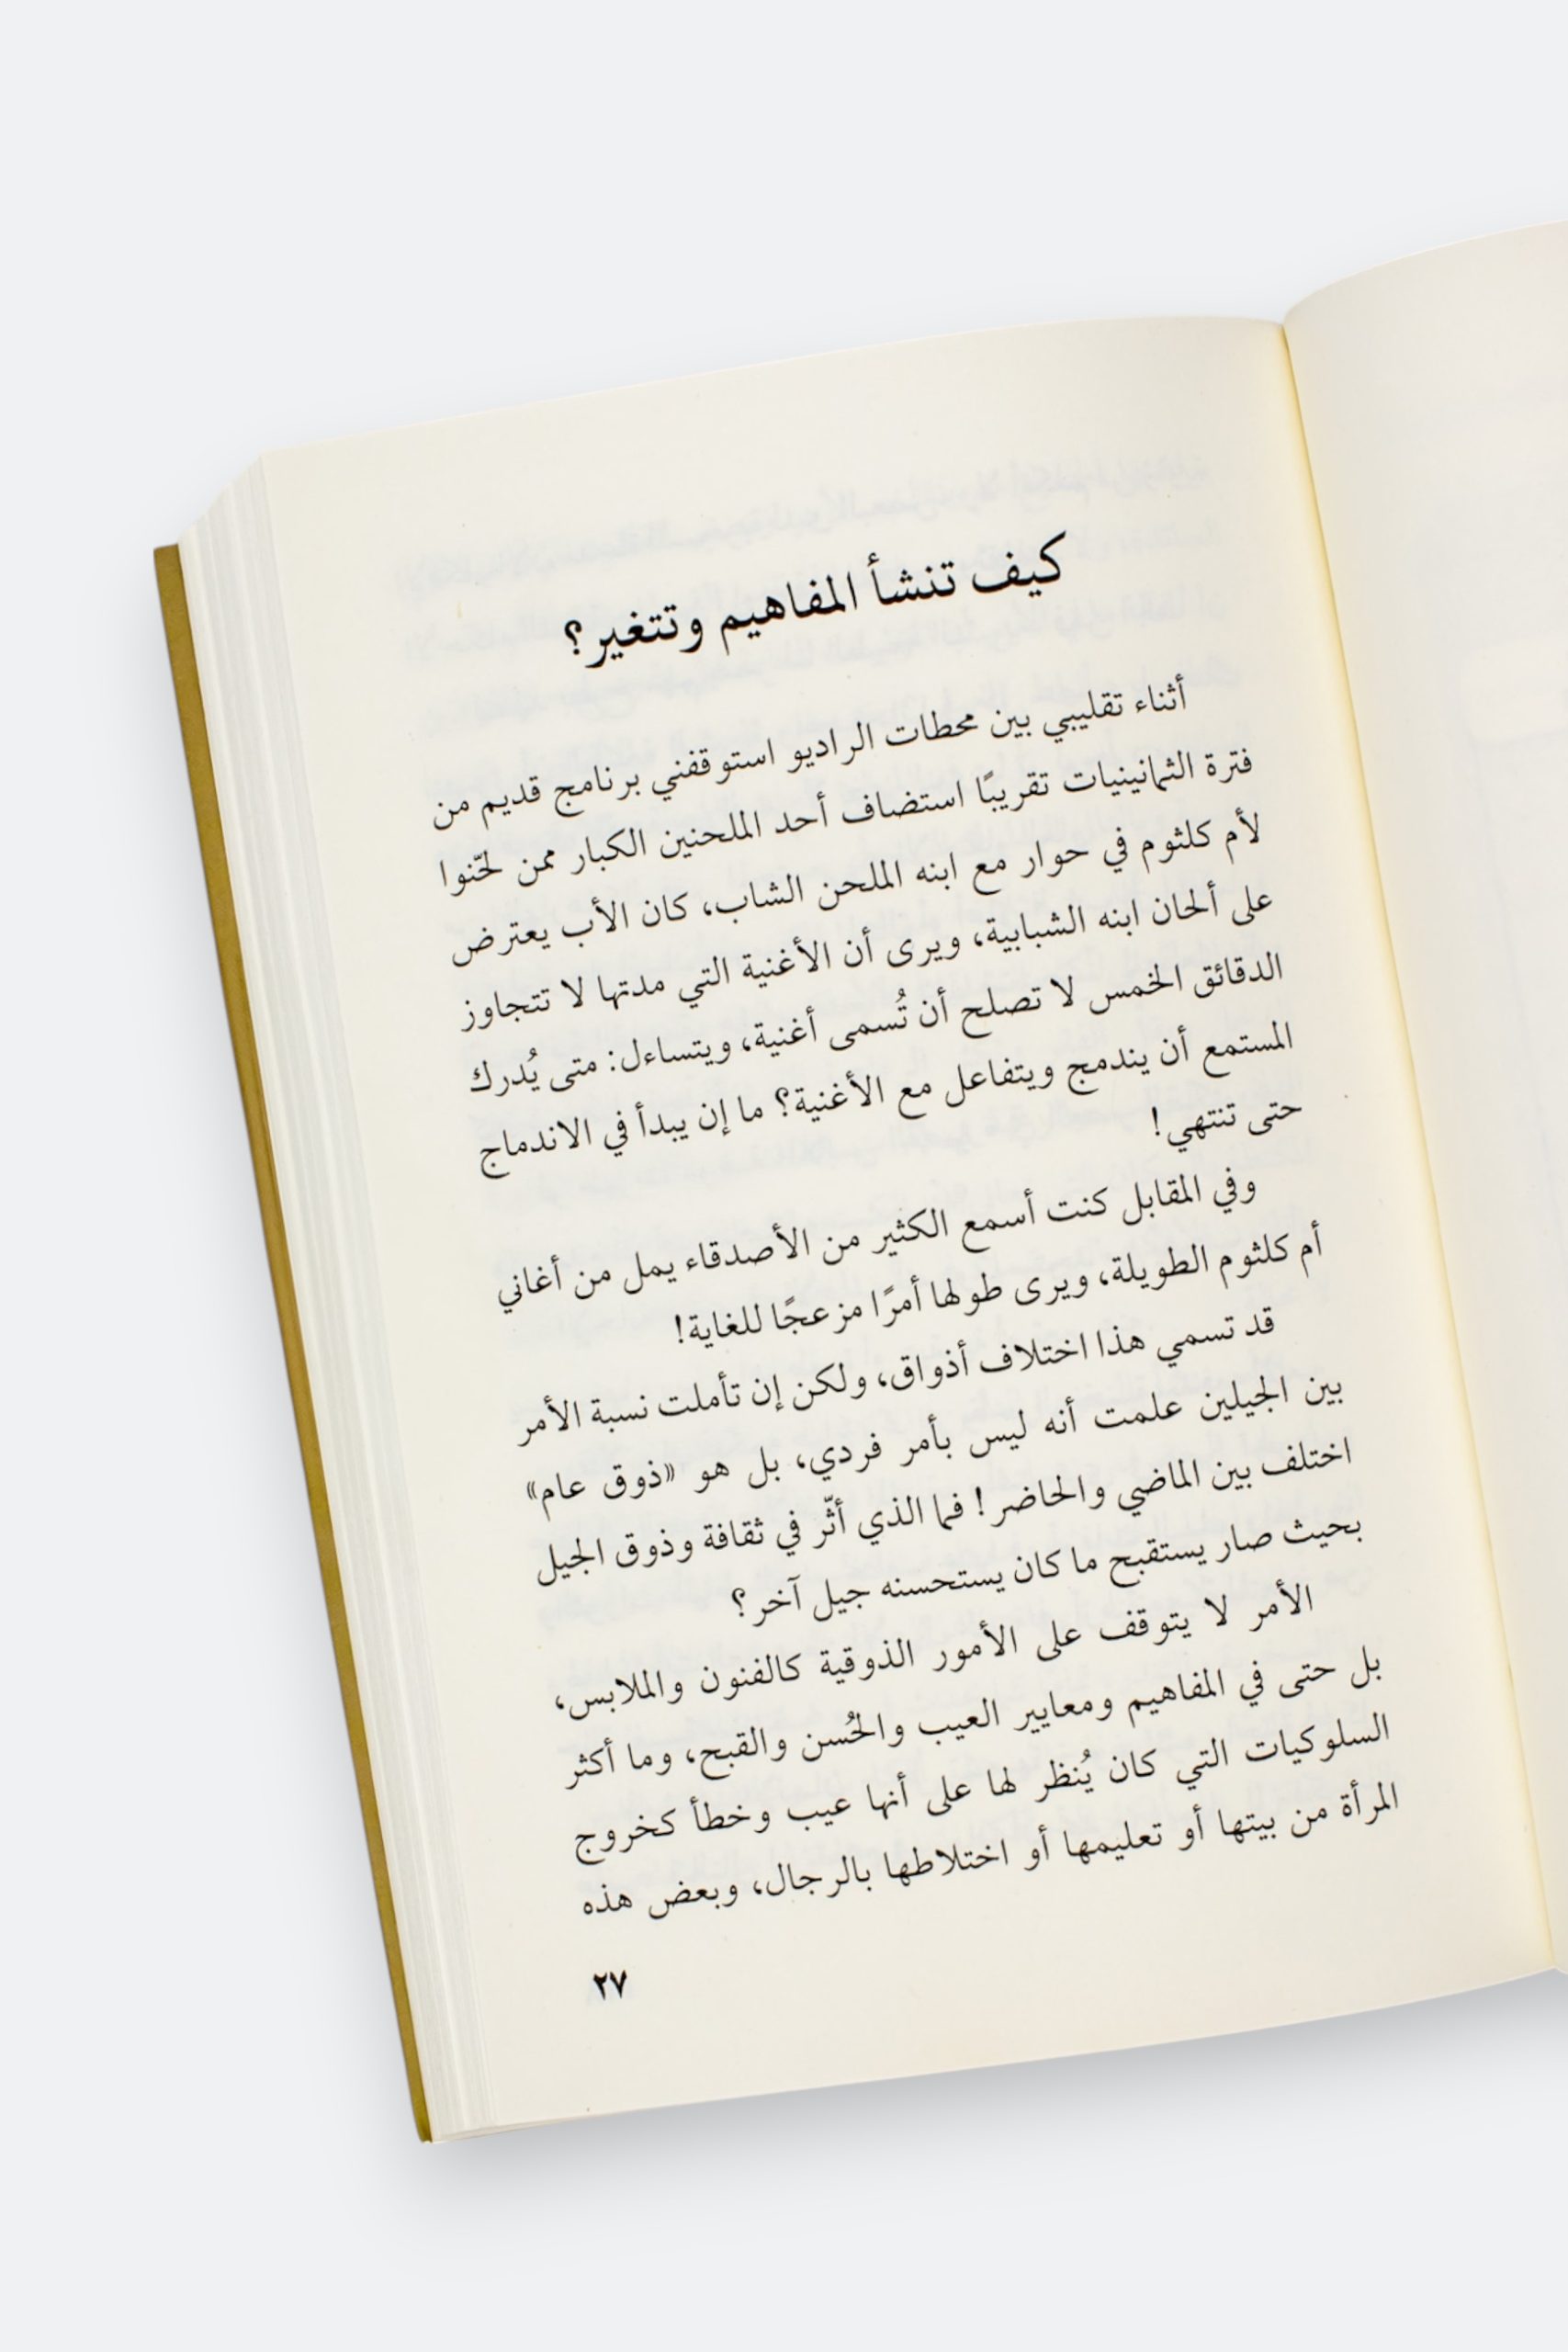 كيف تنشأ المفاهيم وتتغير؟
أثناء تقليبي بين محطات الراديو استوقفني برنامج قديم من
فترة الثمانينيات تقريبًا استضاف أحد الملحنين الكبار ممن لحّنوا
لأم كلثوم في حوار مع ابنه الملحن الشاب، كان الأب يعترض
على ألحان ابنه الشبابية، ويرى أن الأغنية التي مدتها لا تتجاوز
الدقائق الخمس لا تصلح أن تُسمى أغنية، ويتساءل: متى يُدرك
المستمع أن يندمج ويتفاعل مع الأغنية؟ ما إن يبدأ في الاندماج
حتى تنتهي!
وفي المقابل كنت أسمع الكثير من الأصدقاء يمل من أغاني
أم كلثوم الطويلة، ويرى طولها أمرًا مزعجًا للغاية!
قد تسمي هذا اختلاف أذواق، ولكن إن تأملت نسبة الأمر
بين الجيلين علمت أنه ليس بأمر فردي، بل هو «ذوق عام»
اختلف بين الماضي والحاضر! فما الذي أثّر في ثقافة وذوق الجيل
بحيث صار يستقبح ما كان يستحسنه جيل آخر؟
الأمر لا يتوقف على الأمور الذوقية كالفنون والملابس،
بل حتى في المفاهيم ومعايير العيب والحُسن والقبح، وما أكثر
السلوكيات التي كان يُنظر لها على أنها عيب وخطأ كخروج
المرأة من بيتها أو تعليمها أو اختلاطها بالرجال، وبعض هذه
٢٧